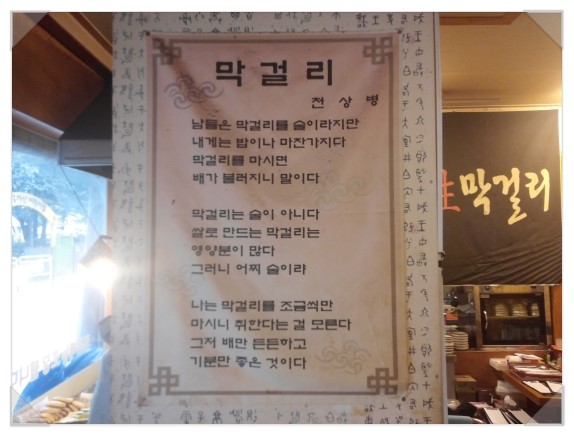 막걸리
천상병
남들은 막걸리를 술이라지만
내게는 밥이나 마찬가지다
막걸리를 마시면
배가 불러지니 말이다
막걸리는 술이 아니다
쌀로 만드는 막걸리는
영양분이 많다
그러니 어찌 술이랴
나는 막걸리를 조금씩만
마시니 취한다는 걸 모른다
그저 배만 든든하고
기분만 좋은 것이다
生막걸리